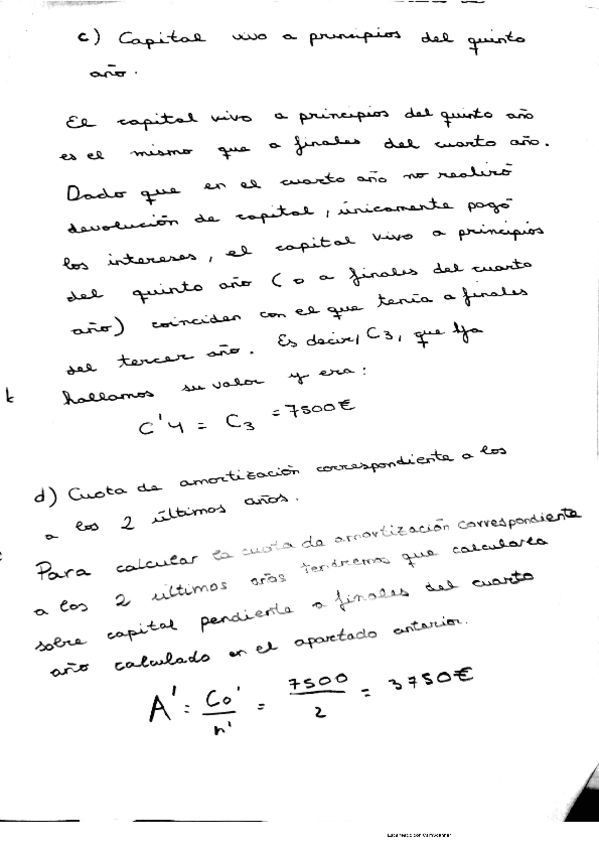 c) Capital vivo a principios del quinto
año.
El capital vivo a principios del quinto año
es el mismo que a finales del cuarto año.
Dado que en el cuarto año no realizó
devolución de capital, únicamente pagó
los intereses, el capital vivo a principios
del quinto año (o a finales del cuarto
año) coinciden con el que tenía a finales
del tercer año. Es decir, C3, que ya
hallamos su valor y era:
C'4 = C3 = 7500€
d) Cuota de amortización correspondiente a los
a los 2 últimos años.
Para calcular la cuota de amortización correspondiente
a los 2 últimos años tendremos que calcularla
sobre capital pendiente a finales del cuarto
año calculado en el apartado anterior.
A' = Co'/n' = 7500/2 = 3750€